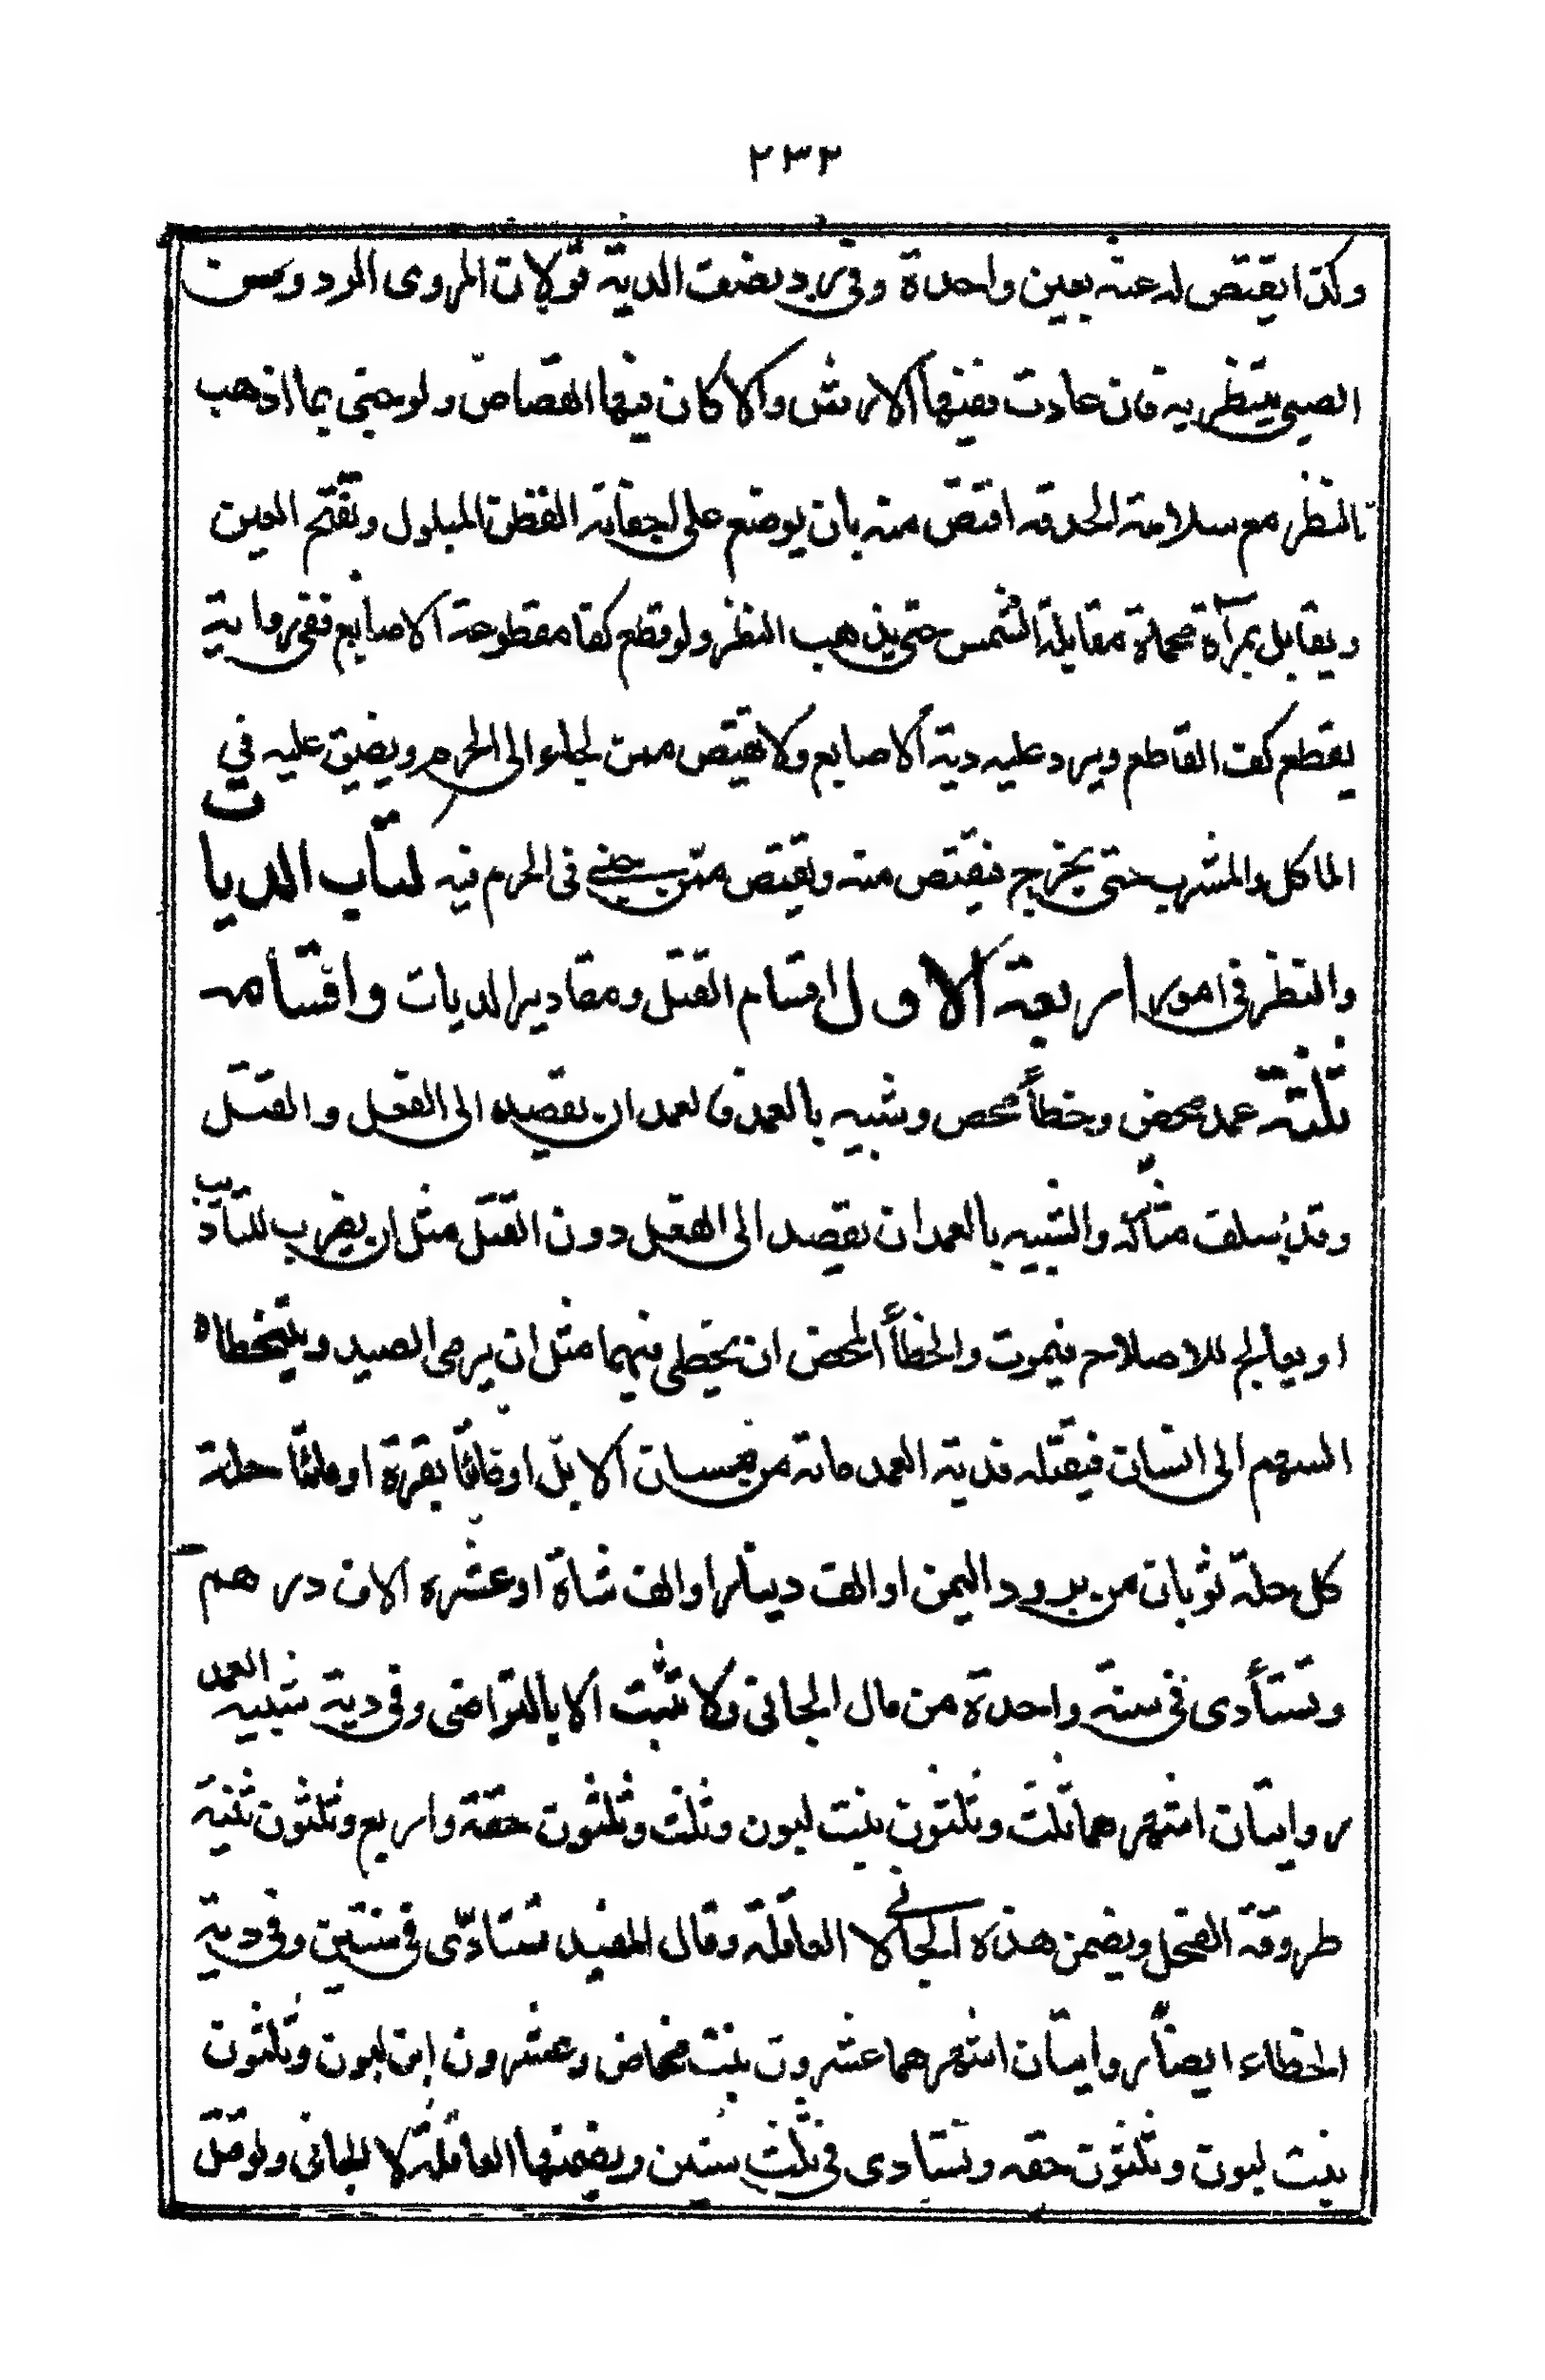 ٢٣٢
وكذا يقتص له عنه بعين واحدة وفى رد نصف الدية قولان المروى الرد وسن
الصبى ينتظر به فان عادت ففيها الارش والا كان فيها القصاص ولو جنى بما اذهب
النظر مع سلامة الحدقه اقتص منه بان يوضع على اجفانه القطن المبلول وتفتح العين
ويقابل بمرآة محماة مقابلة الشمس حتى يذهب النظر ولو قطع كفا مقطوعة الاصابع ففى رواية
يقطع كف القاطع ويرد عليه دية الاصابع ولا يقتص ممن لجاء الى الحرم ويضيق عليه فى
الماكل والمشرب حتى يخرج فيقتص منه ويقتص ممن جنى فى الحرم فيه كتاب الديات
والنظر فى امور اربعة الاول اقسام القتل ومقادير الديات واقسامه
ثلثة عمد محض وخطأ محض وشبيه بالعمد فالعمد ان يقصد الى الفعل والقتل
وقد سلف مثاله والشبيه بالعمد ان يقصد الى الفعل دون القتل مثل ان يضرب للتاديب
او يعالج للاصلاح فيموت والخطأ المحض ان يخطى فيهما مثل ان يرمى الصيد ويتخطاه
السهم الى انسان فيقتله فدية العمد مائة من مسان الابل او مائتا بقرة او مائتا حلة
كل حلة ثوبان من برود اليمن او الف دينار او الف شاة او عشره الاف درهم
وتستأدى فى سنة واحدة من مال الجانى ولا تثبت الا بالتراضى وفى دية شبيه العمد
روايتان اشهرهما ثلث وثلثون بنت لبون وثلث وثلثون حقة واربع وثلثون ثنية
طروقة الفحل ويضمن هذه الجانى لا العاقلة وقال المفيد تستادّى فى سنتين وفى دية
الخطاء ايضاً روايتان اشهرهما عشرون بنت مخاض وعشرون ابن لبون وثلثون
بنت لبون وثلثون حقه وتستادى فى ثلث سنين ويضمنها العاقلة لا الجانى ولو قتل